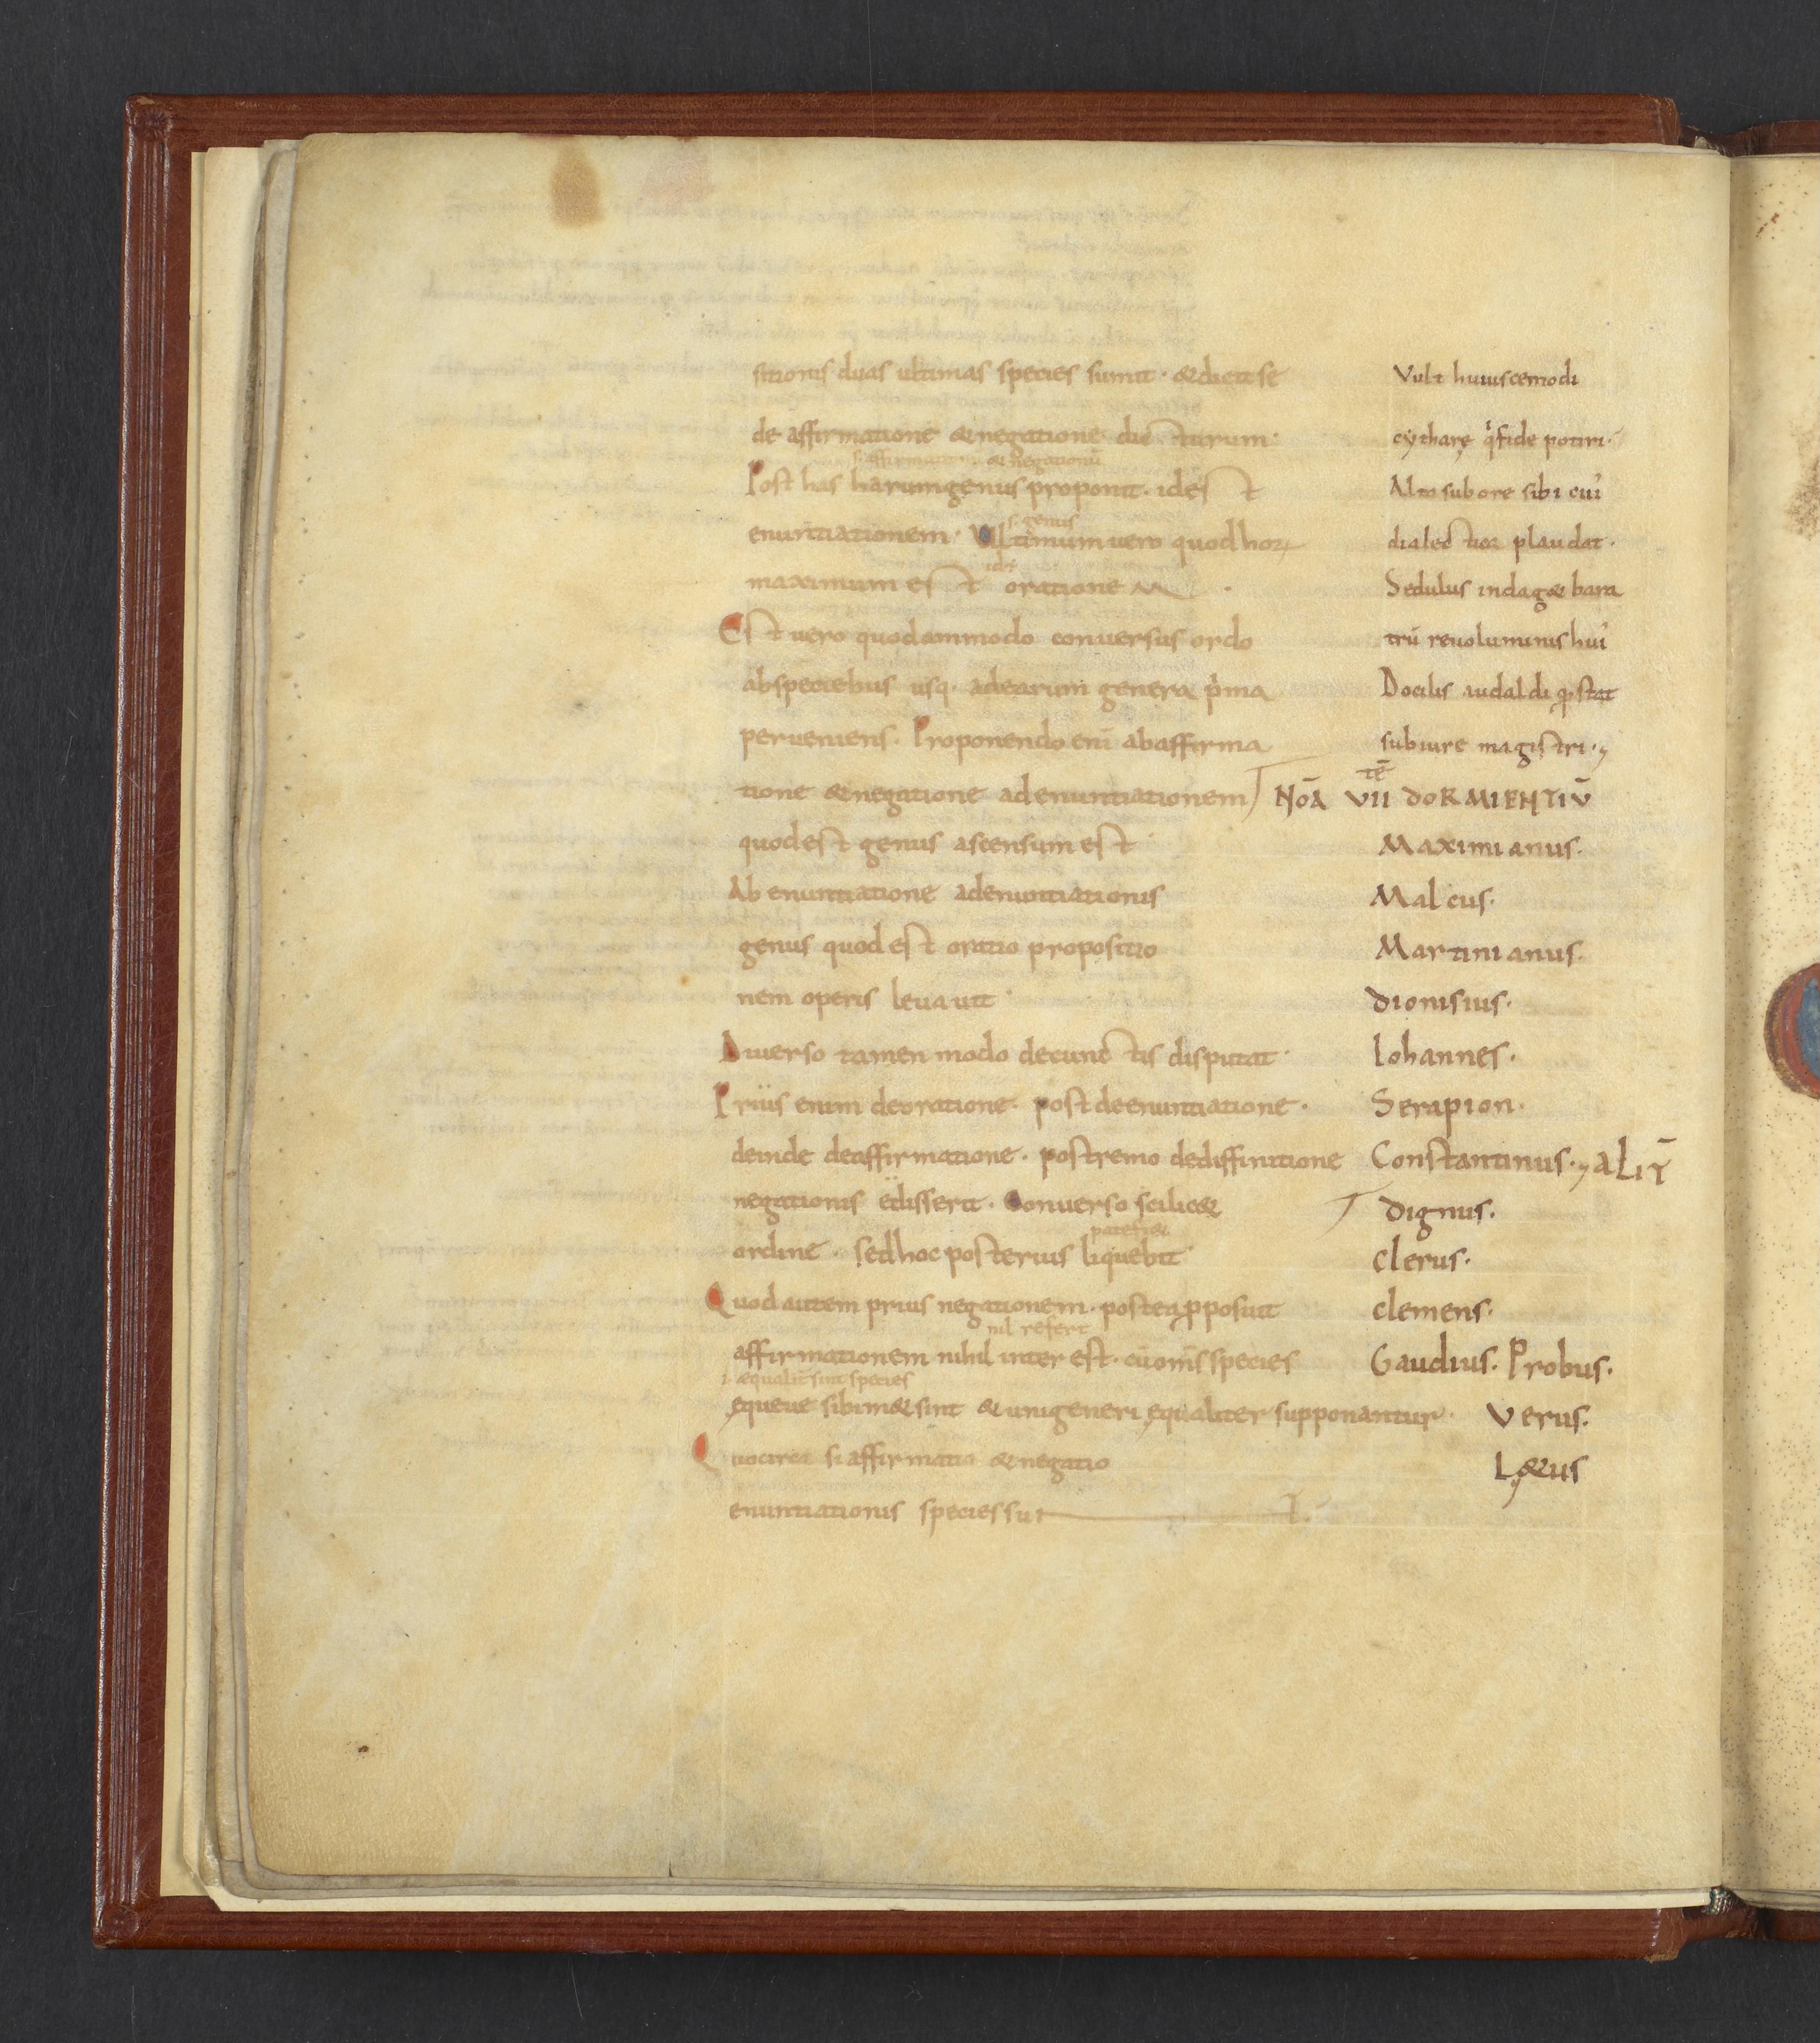 sitionis duas ultimas species sumit · & dicit se
de affirmatione & negatione dicturum ·
s. affirmationum & negationū
Post has harum genus proponit · id est
enuntiationem · Ultimum uero quod hoꝝ
s. genus
maximum est orationem ·
id est
Est uero quodammodo conuersus ordo
ab speciebus usq· ad earum genera p̍ma
perueniens · Proponendo enī ab affirma
tione & negatione ad enuntiationem
quod est genus ascensum est ·
Ab enuntiatione ad enuntiationis
genus quod est oratio propositio
nem operis leuauit ·
Diuerso tamen modo de cunctis disputat ·
Prius enim de oratione · post de enuntiatione ·
deinde de affirmatione · postremo de diffinitione
negationis edisserit · Conuerso scilic&
ordine · sed hoc posterius liquebit ·
patefi&
Quod autem prius negationem · postea ꝓposuit
affirmationem nihil inter est · cū om̄s species
nil refert
i· æqualit̄ sint species
ęqueue sibim& sint & uni generi ęqualiter supponantur ·
Quocirca si affirmatio & negatio
enuntiationis species sunt ·
Vult huiuscemodi
cytharę q̍ fide potiri ·
Alto sub ore sibi cui᾽
dialectica plaudat ·
Sedulus indag& bara
trū reuoluminis hui᾽
Docilis audaldi p̱stat
subiure magistri ·,
NOĀ VII DORMIENTIŪ
tē
Maximianus ·
Malcus ·
Martinianus ·
Dionisius ·
Iohannes ·
Serapion ·
Constantinus ·, ALIT̄
Dignus ·
Clerus ·
Clemens ·
Gaudius · Probus ·
Verus ·
Lę&us